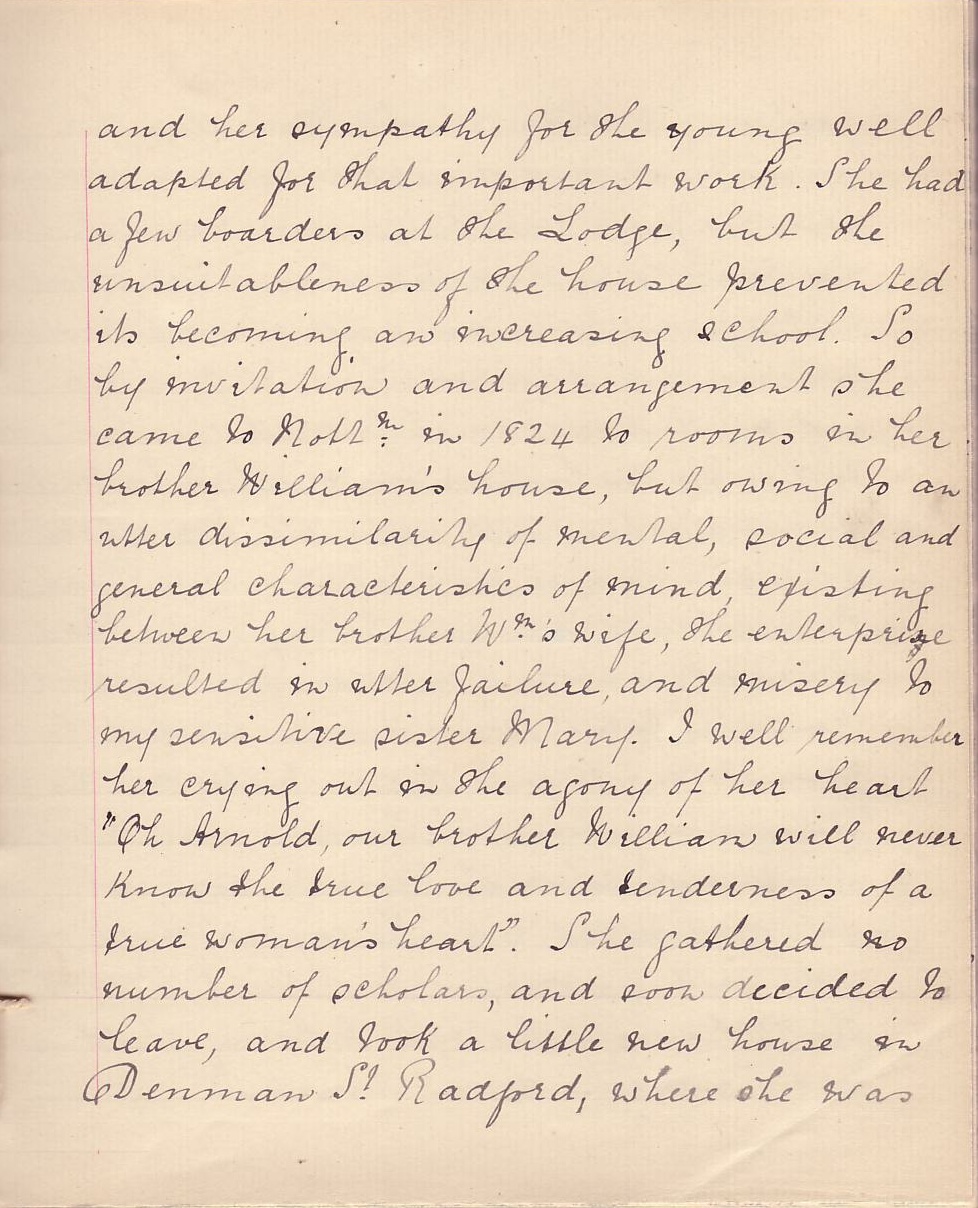 and her sympathy for the young well
adapted for that important work. She had
a few boarders at the Lodge, but the
unsuitableness of the house prevented
its becoming an increasing school. So
by invitation and arrangement she
came to Nottm: in 1824 to rooms in her
brother William's house, but owing to an
utter dissimilarity of mental, social and
general characteristics of mind, existing
between her brother Wm's wife, the enterprize
resulted in utter failure, and misery to
my sensitive sister Mary. I well remember
her crying out in the agony of her heart
"Oh Arnold, our brother William will never
know the true love and tenderness of a
true woman's heart". She gathered no
number of scholars, and soon decided to
leave, and took a little new house in
Denman St Radford, where she was